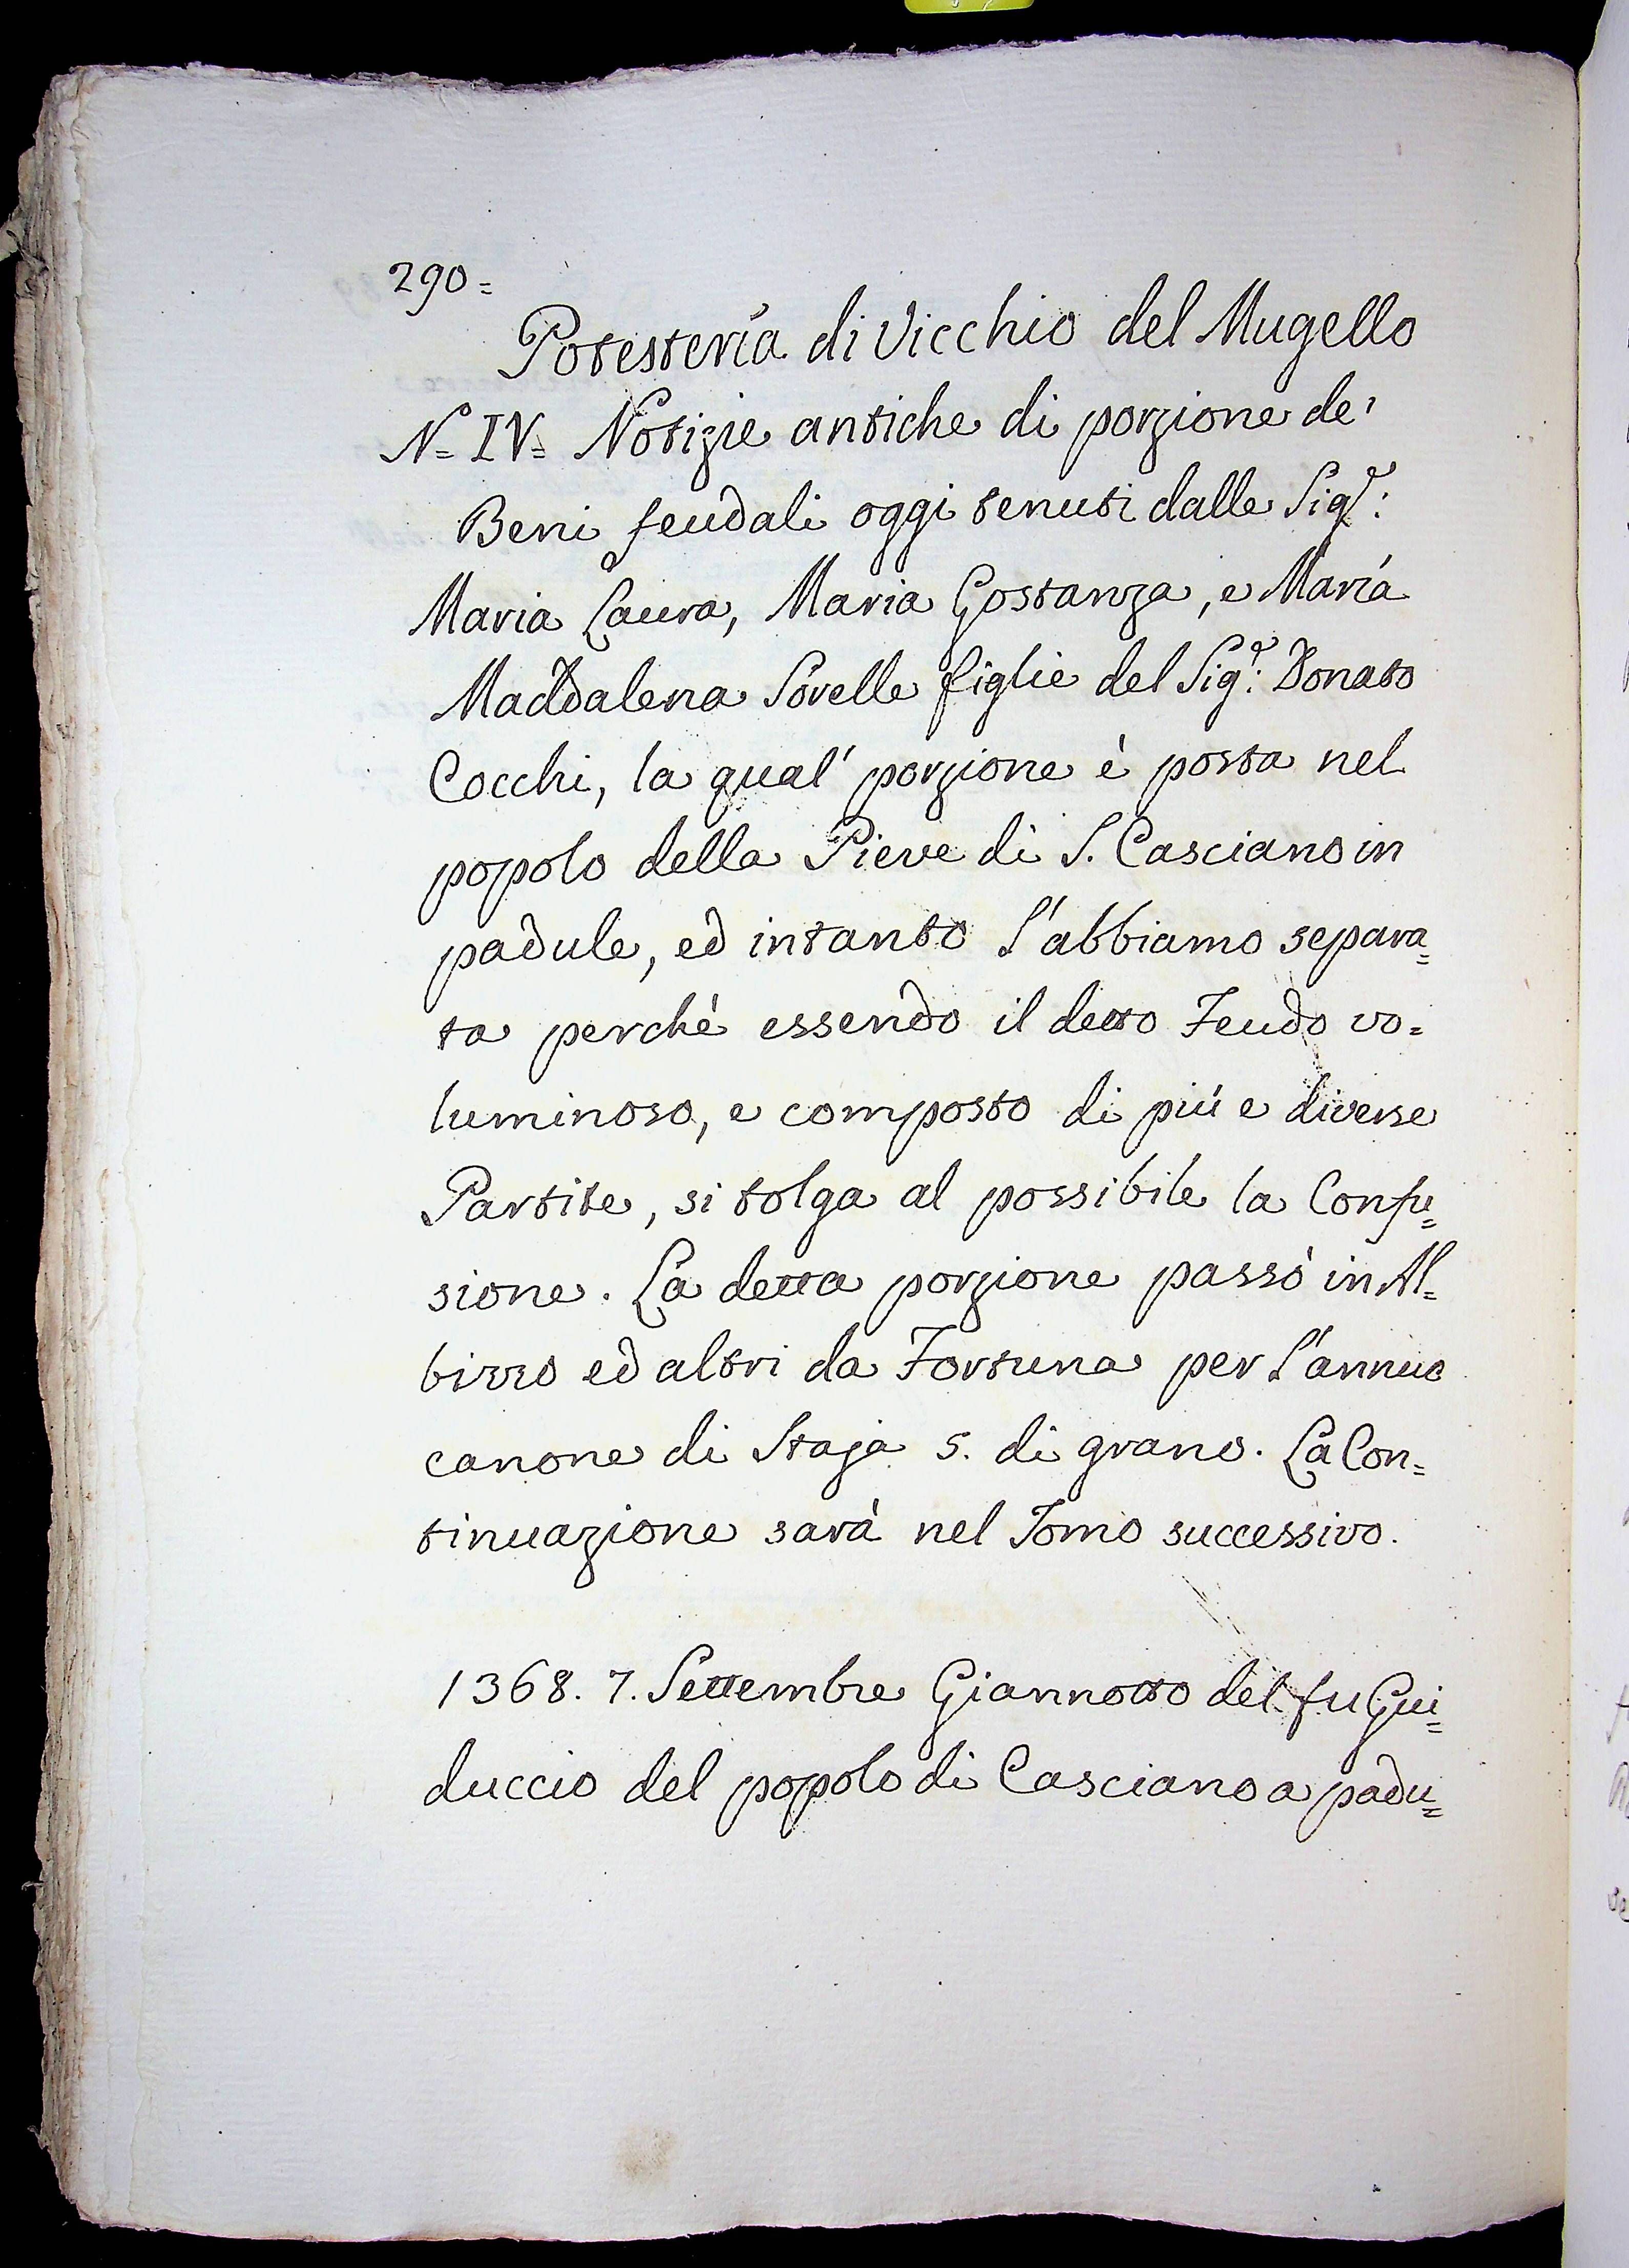 290=
Potesteria di Vicchio del Mugello
N.= IV= Notizie antiche di porzione de'
Beni feudali oggi tenuti dalle Sig.re:
Maria Laura, Maria Gostanza, e Maria
Maddalena Sorelle figlie del Sig.r: Donato
Cocchi, la qual' porzione è posta nel
popolo della Pieve di S. Casciano in
padule, ed intanto l'abbiamo separa=
ta perchè essendo il detto Feudo vo=
luminoso, e composto di più e diverse
Partite, si tolga al possibile la Confu=
sione. La detta porzione passò in Al=
birro ed altri da Fortuna per l'annuo
canone di Staja 5. di grano. La Con=
tinuazione sarà nel Tomo successivo.
1368. 7. Settembre Giannotto del fu Gui=
duccio del popolo di Casciano a padu=